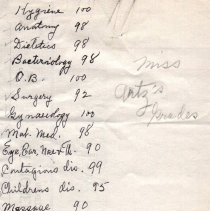 Hygiene 100
Anatomy 98
Dietetics 98
Bacteriology 98
O.B. 100
Surgery 92
Gynaecology 100
Mat. Med. 98
Eye, Ear, Nose & Th. 90
Contagious dis. 99
Childrens dis. 95
Massage 90
Miss
Artz's
Grades